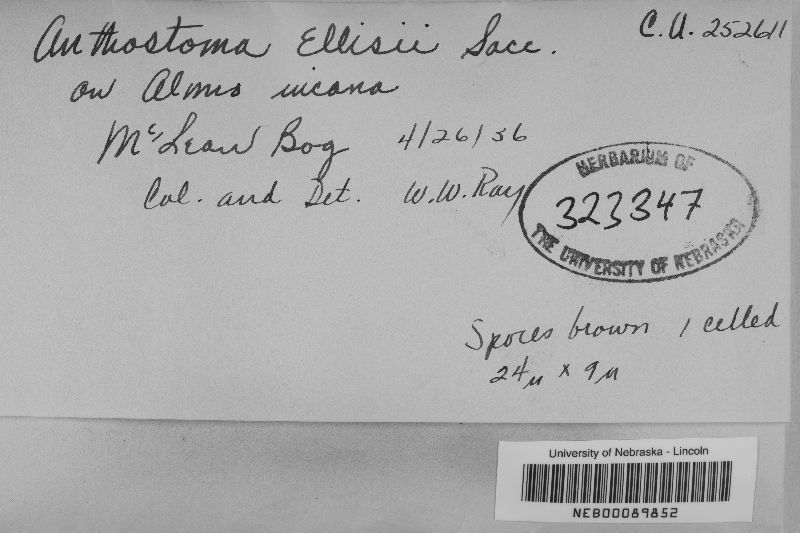 Anthostoma Ellisii Sacc.
C.U. 25261
on Alnus incana
McLean Bog 4/26/36
Col. and Det. W.W. Ray
HERBARIUM OF
323347
THE UNIVERSITY OF NEBRASKA
Spores brown 1 celled
24µ x 9µ
University of Nebraska - Lincoln
NEB00089852